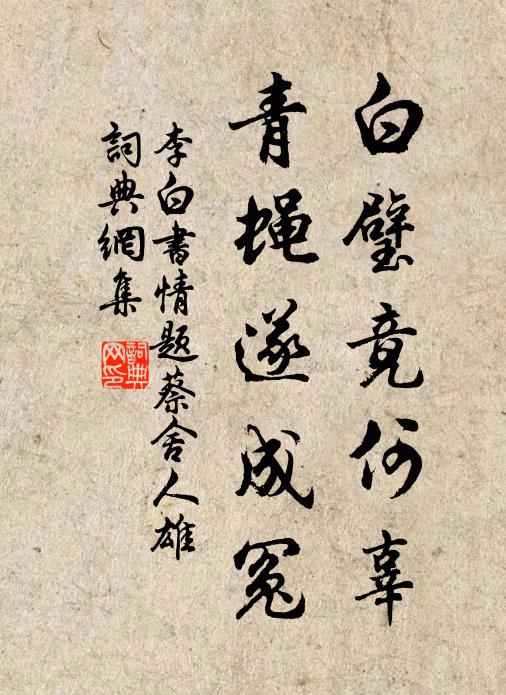 白璧竟何辜
青蝇遂成冤
李白書情题蔡舍人雄
詞典網集
詞典
网印